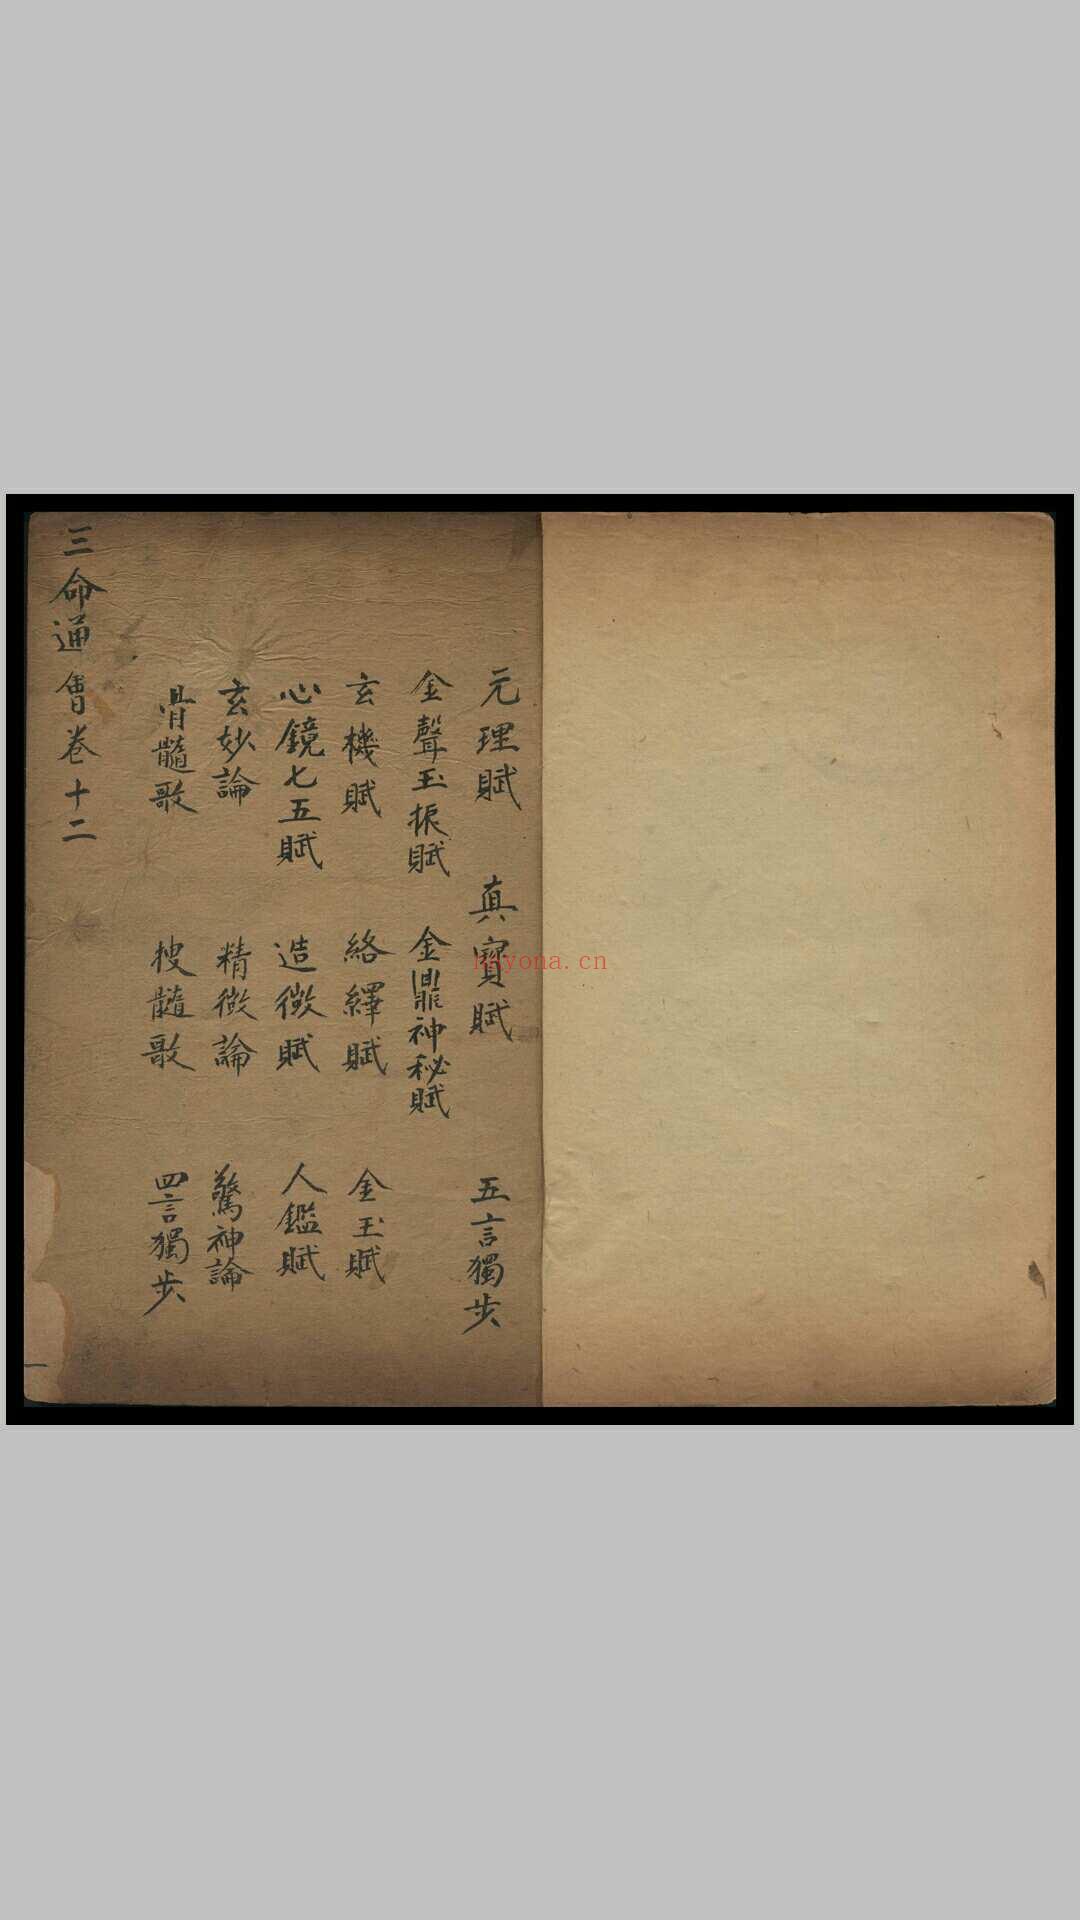 元理賦 真寳賦 五言獨步
金聲玉振賦 金鼎神秘賦
玄機賦 絡繹賦 金玉賦
心鏡七五賦 造微賦 人鑑賦
玄妙論 精微論 驚神論
骨髓歌 搜髓歌 四言獨步
三命通會卷十二
一
yona.cn